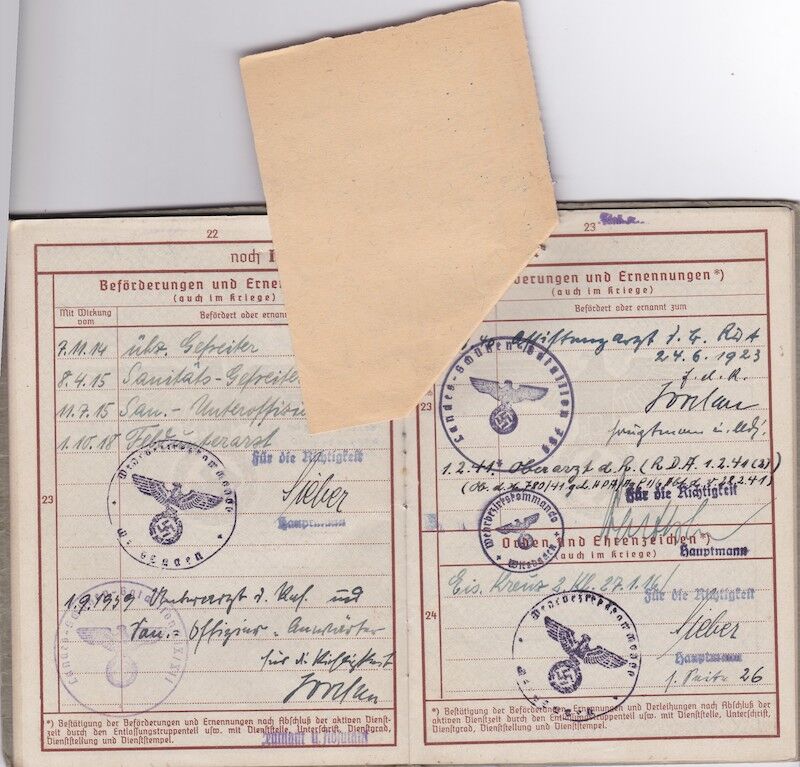 22
noch I
Beförderungen und Erne
(auch im Kriege)
Mit Wirkung
vom
Befördert oder ernan
7.11.14 übz. Gefreiter
8.4.15 Sanitäts-Gefreite
11.7.15 San.-Unteroffizi
1.10.18 Feldunterarzt
Für die Richtigkeit
Sieber
Hauptmann
Wehrbezirkskommando
23
1.9.1939 Unterarzt d. und
San.-Offizier-Anwärter
für d. Richtigkeit
Leutnant u. Adjutant
*) Bestätigung der Beförderungen und Ernennungen nach Abschluß der aktiven Dienst-
zeit durch den Entlassungstruppenteil usw. mit Dienststelle, Unterschrift, Dienstgrad,
Dienststellung und Dienststempel.
23
derungen und Ernennungen*)
(auch im Kriege)
Befördert oder ernannt zum
Assistenzarzt RDA
24.6.1923
Hauptmann
23
1.2.41 Oberarzt d. R. (R.D.A. 1.2.41
Für die Richtigkeit
Hauptmann
Wehrbezirkskommando
Orden und Ehrenzeichen*)
(auch im Kriege)
Eis. Kreuz 2. Kl. 27.1.16
Für die Richtigkeit
Sieber
Hauptmann
Wehrbezirkskommando
24
1. Seite 26
*) Bestätigung der Beförderungen, Ernennungen und Verleihungen nach Abschluß der
aktiven Dienstzeit durch den Entlassungstruppenteil usw. mit Dienststelle, Unterschrift,
Dienstgrad, Dienststellung und Dienststempel.